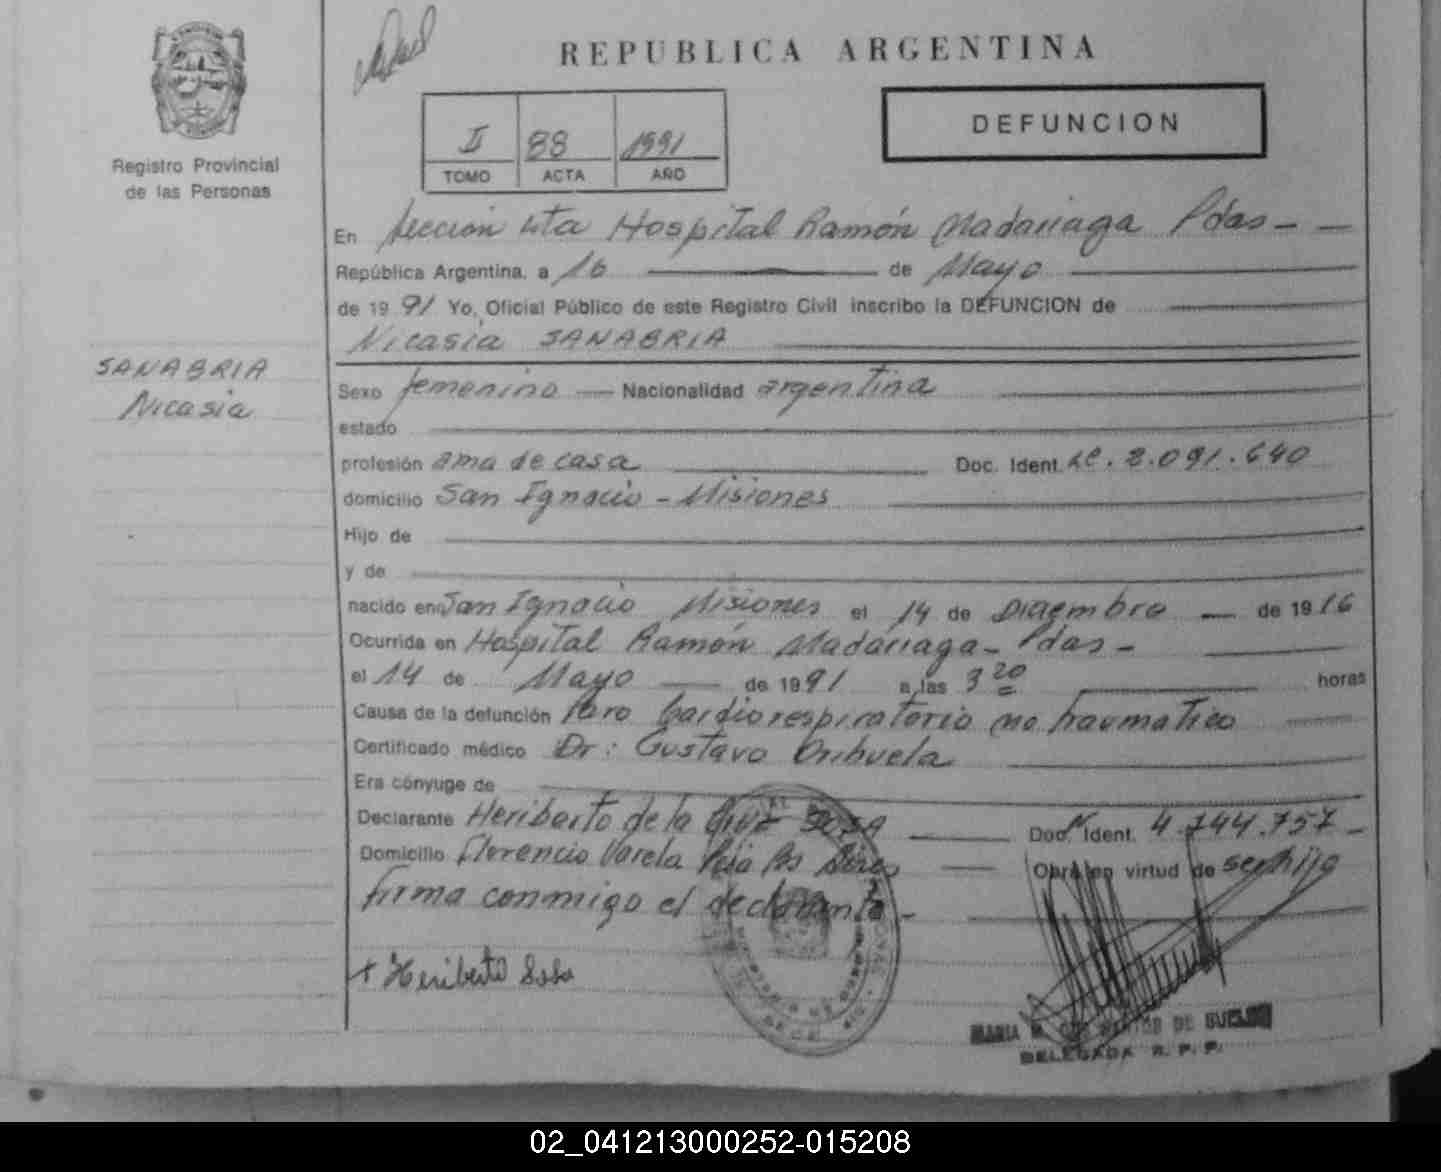 REPUBLICA ARGENTINA
Registro Provincial
de las Personas
II 88 1991
TOMO ACTA AÑO
DEFUNCION
En Sección 4ta Hospital Ramón Madariaga Pdas - -
República Argentina, a 16 de Mayo
de 1991 Yo, Oficial Público de este Registro Civil inscribo la DEFUNCION de
Nicasia SANABRIA
SANABRIA
Nicasia
Sexo femenino — Nacionalidad argentina
estado
profesión ama de casa Doc. Ident. LC. 2.091.640
domicilio San Ignacio - Misiones
Hijo de
y de
nacido en San Ignacio Misiones el 14 de Diciembre — de 1916
Ocurrida en Hospital Ramón Madariaga - Pdas -
el 14 de Mayo — de 1991 a las 3 20 horas
Causa de la defunción Paro Cardiorespiratorio no traumatico
Certificado médico Dr: Gustavo Orihuela
Era cónyuge de
Declarante Heriberto de la Cruz SOSA — Doc. Ident. 4.744.757 -
Domicilio Florencio Varela Pcia Bs Aires — Obra en virtud de ser hijo
firma conmigo el declarante -
+ Heriberto Sosa
MARIA M. DE
DELEGADA R. P. P.
02_041213000252-015208